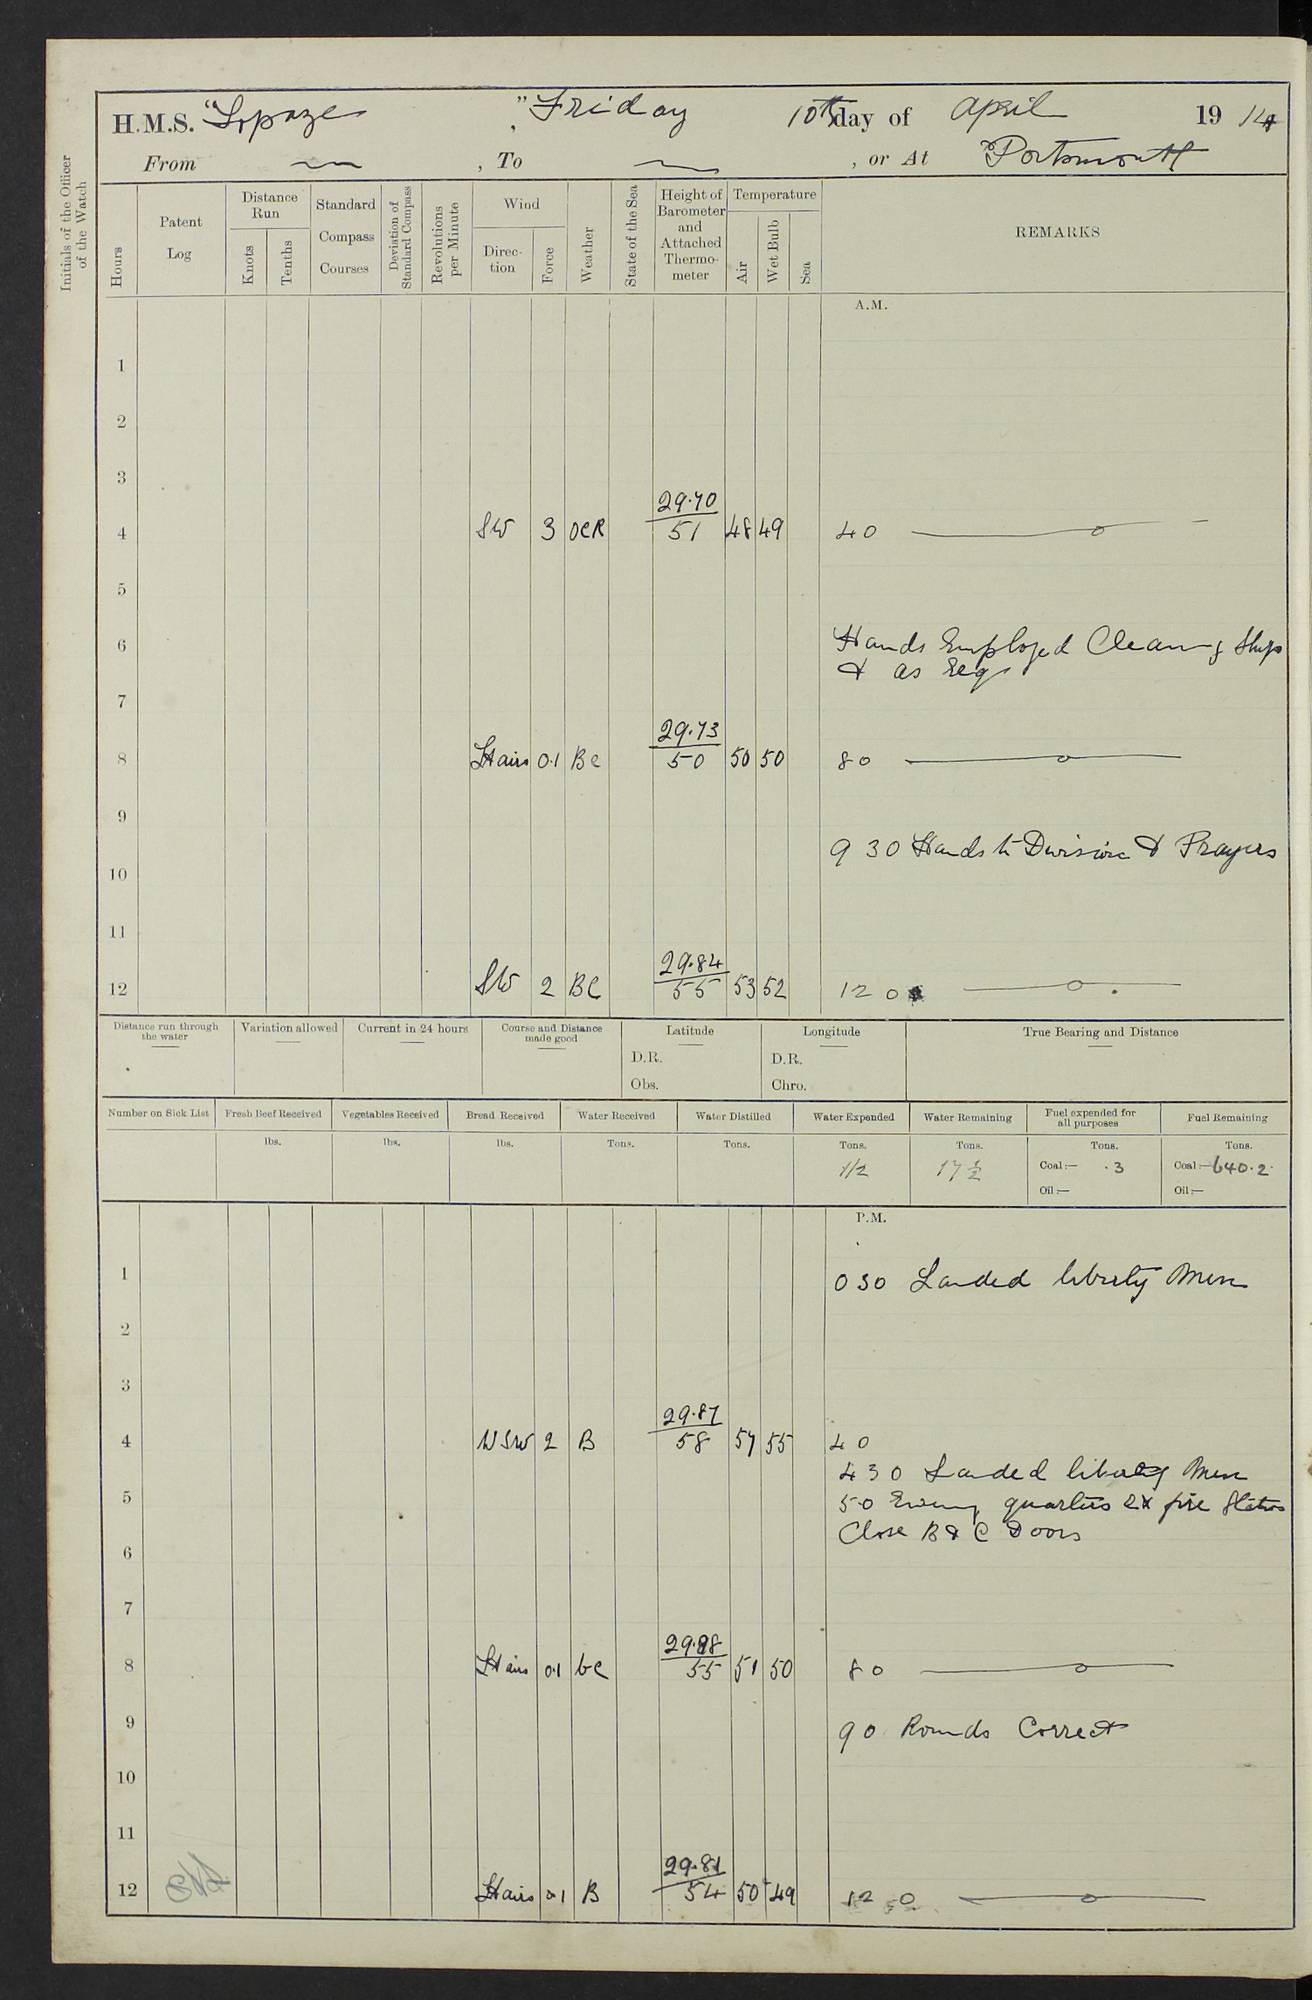 H.M.S. "Topaze", Friday 10th day of April 1914
From —, To —, or At Portsmouth
Initials of the Officer of the Watch
Hours
Patent Log
Distance Run
Knots
Tenths
Standard Compass Courses
Deviation of Standard Compass
Revolutions per Minute
Wind
Direction
Force
Weather
State of the Sea
Height of Barometer and Attached Thermometer
Temperature
Air
Wet Bulb
Sea
REMARKS
A.M.
1
2
3
4 SW 3 OCR 29.70/51 48 49 4 0
5
6 Hands Employed Cleaning Ship
& as Req
7
8 Ltairs 0.1 Bc 29.73/50 50 50 8 0
9
9 30 Hands to Division & Prayers
10
11
12 SW 2 BC 29.84/55 53 52 12 0
Distance run through the water
Variation allowed
Current in 24 hours
Course and Distance made good
Latitude
D.R.
Obs.
Longitude
D.R.
Chro.
True Bearing and Distance
Number on Sick List
Fresh Beef Received
Vegetables Received
Bread Received
Water Received
Water Distilled
Water Expended
Water Remaining
Fuel expended for all purposes
Fuel Remaining
lbs. lbs. lbs. Tons. Tons. Tons. Tons. Tons. Tons.
1/2 17 1/2 Coal:— .3 Coal:— 640.2
Oil:— Oil:—
P.M.
1 0 30 Landed liberty Men
2
3
4 WSW 2 B 29.87/58 57 55 4 0
4 30 Landed liberty Men
5 5 0 Evening quarters Ex fire Stations
Close B & C Doors
6
7
8 Ltairs 0.1 bc 29.88/55 51 50 8 0
9 9 0 Rounds Correct
10
11
12 Ltairs 0.1 B 29.81/54 50 49 12 0